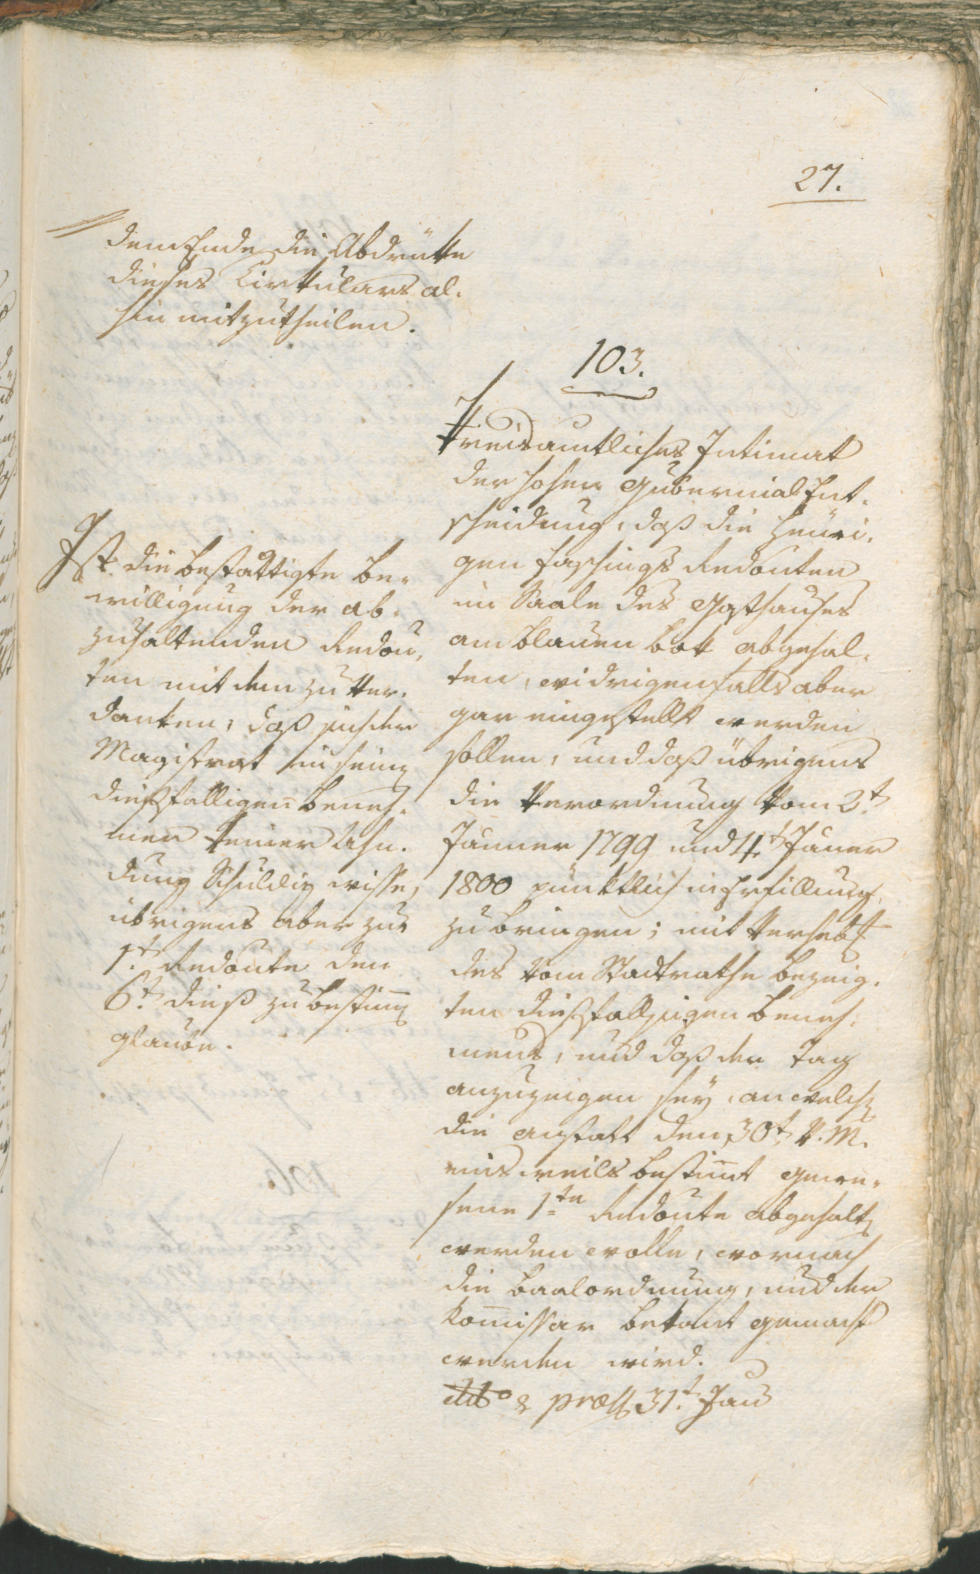 27.
dem Ende die Abdrücke
dieses Cirkulars al-
hin mitzutheilen.
103.
Kreisamtliches Intimat
der hohen Gubernial Ent-
scheidung, daß die heuri-
gen Faschings Redouten
im Saale des Gasthauses
am blauen Bok abgehal-
ten, widrigenfalls aber
gar eingestellt werden
sollen, und daß übrigens
die Verordnung vom 2t
Jänner 1799 und 4t Jäner
1800 pünktlich in Erfüllung
zu bringen; mit Verhebung
des vom Stadtrathe bezeig-
ten dießfälligen Beneh-
mens, und daß der Tag
anzuzeigen sey, an welchen
die anstatt den 30t v. M.
einsweils bestimt gewe-
sene 1te Redoute abgehalten
werden wolle, wornach
die Baalordnung, und der
Komissär bekant gemacht
werden wird.
ddto & præs 31t Jan
Ist die bestättigte Be-
willigung der ab-
zuhaltenden Redou-
ten mit dem zu ver-
danken, daß sich der
Magistrat in seinem
dießfälligen Beneh-
men keiner Ahn-
dung schuldig wisse,
übrigens aber zur
1t Redoute den
6t dieß zu bestimmen
glaube.